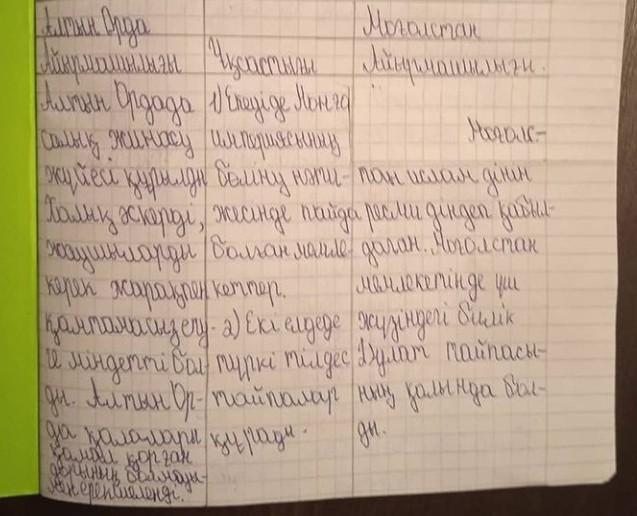 Алтын Орда
Моғолстан
Айырмашылығы
Ұқсастығы
Айырмашылығы.
Алтын Ордада
салық жинасу
жүйесі құрылды
Халық әскерді,
жаушыларды
керек жарақпен
қамтамасыз ету-
ге міндетті бол
ды. Алтын Ор-
да қалалары
қамал қорған
дарының болмауы-
мен ерекшеленді.
1) Екеуіде Монғо
империясының
бөліну нәти-
жесінде пайда
болған мемле
кеттер.
2) Екі елдеде
түркі тілдес
тайпалар
құрады.
Моғолс-
тан ислам дінін
ресми діндеп қабыл-
даған. Моғолстан
мемлекетінде үш
жүзіндегі билік
Дулат тайпасы-
ның қолында бол-
ды.